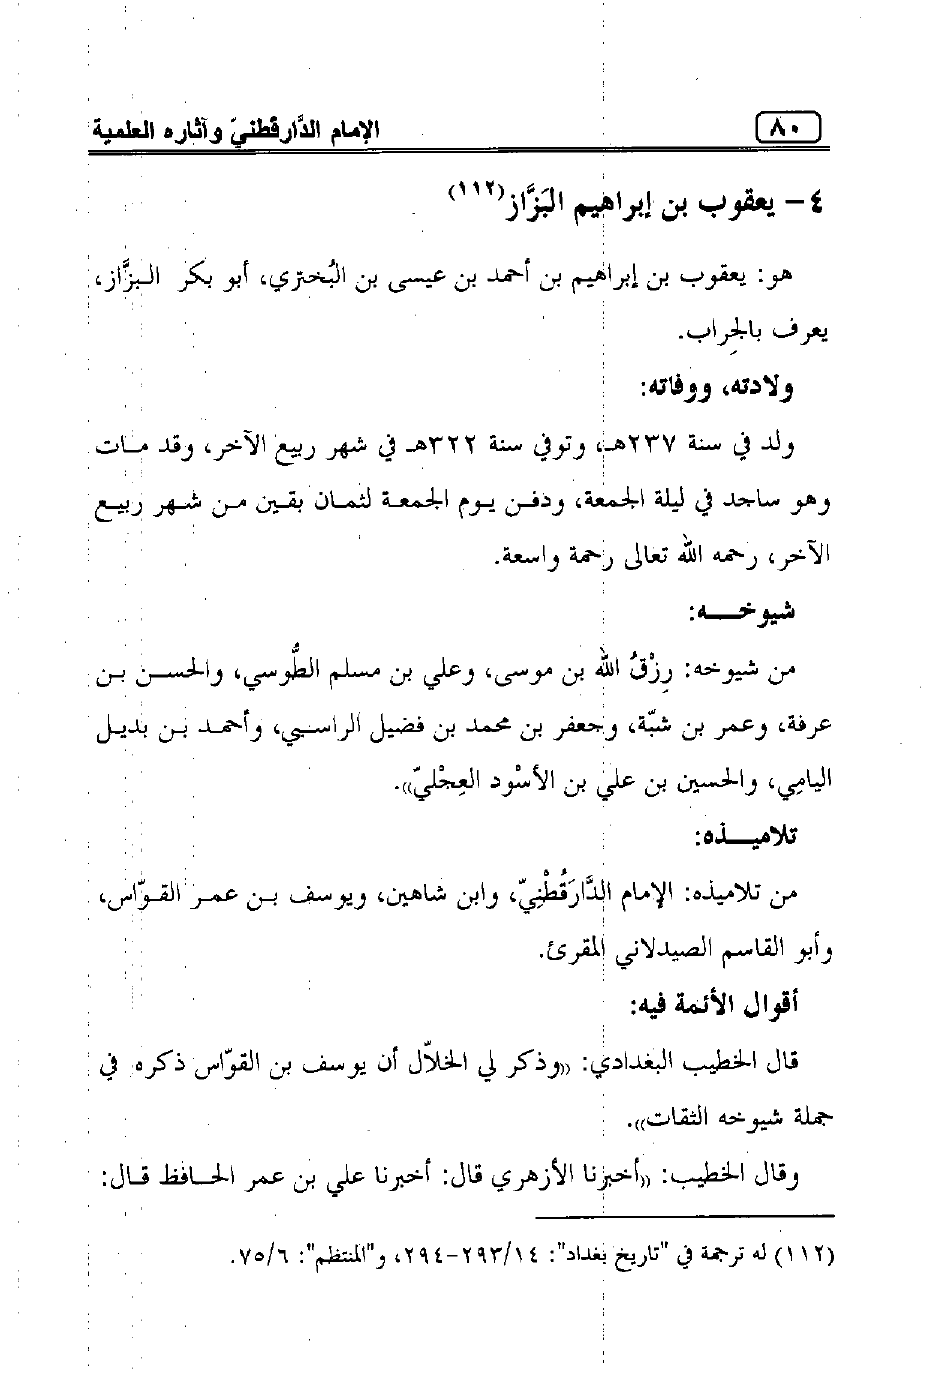 ٨٠
الإمام الدَّارقطنيّ وآثاره العلمية
٤- يعقوب بن إبراهيم البَزَّاز(١١٢)
هو: يعقوب بن إبراهيم بن أحمد بن عيسى بن البُختري، أبو بكر البزَّاز،
يعرف بالجِراب.
ولادته، ووفاته:
ولد في سنة ٢٣٧هـ، وتوفي سنة ٣٢٢هـ في شهر ربيع الآخر، وقد مات
وهو ساجد في ليلة الجمعة، ودفن يوم الجمعة لثمان بقين من شهر ربيع
الآخر، رحمه الله تعالى رحمة واسعة.
شيوخــه:
من شيوخه: رِزْقُ الله بن موسى، وعلي بن مسلم الطُّوسي، والحسن بن
عرفة، وعمر بن شبّة، وجعفر بن محمد بن فضيل الراسبي، وأحمد بن بديل
اليامِي، والحسين بن علي بن الأسْود العِجْليّ».
تلاميــذه:
من تلاميذه: الإمام الدَّارَقُطْنِيّ، وابن شاهين، ويوسف بن عمر القوّاس،
وأبو القاسم الصيدلاني المقرئ.
أقوال الأئمة فيه:
قال الخطيب البغدادي: «وذكر لي الخلاّل أن يوسف بن القوّاس ذكره في
جملة شيوخه الثقات».
وقال الخطيب: «أخبرنا الأزهري قال: أخبرنا علي بن عمر الحافظ قال:
(١١٢) له ترجمة في "تاريخ بغداد": ٢٩٣/١٤-٢٩٤، و"المنتظم": ٧٥/٦.